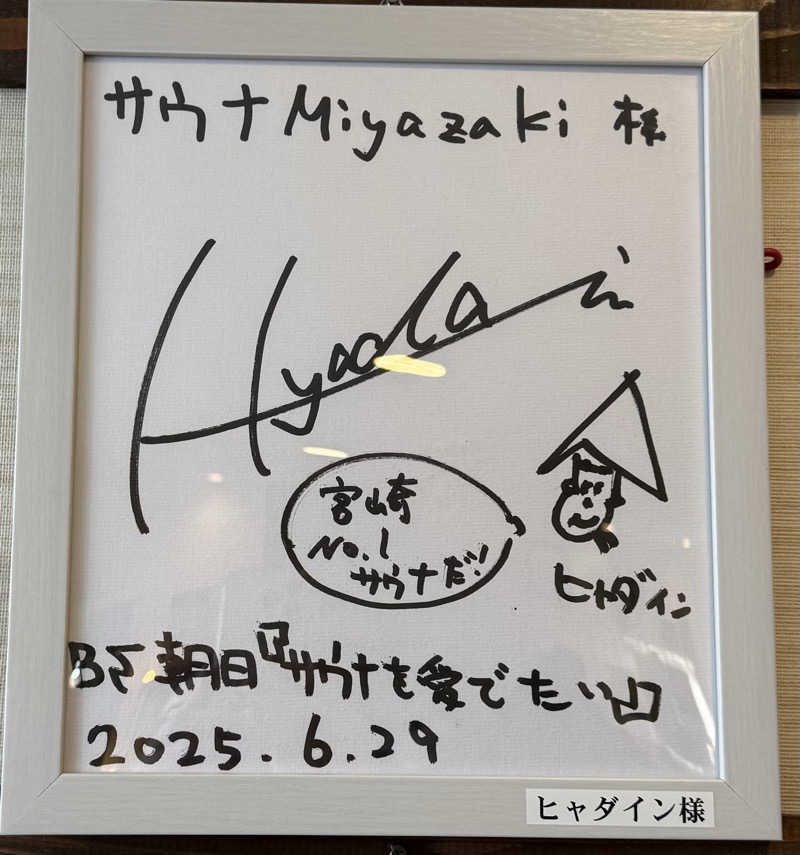 サウナMiyazaki 様
Hyadain
宮崎
No.1
サウナだ!
ヒャダイン
BS朝日『サウナを愛でたい』
2025.6.29
ヒャダイン様